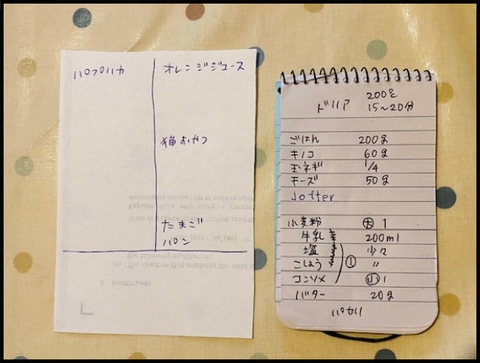 パプリカ
オレンジジュース
猫おやつ
たまご
パン
200℃
ドリア 15~20分
ごはん 200g
キノコ 60g
玉ネギ 1/4
チーズ 50g
Jotter
小麦粉 大1
牛乳 200ml
塩 少々
こしょう 〃
①
コンソメ 小1
バター 20g
パセリ